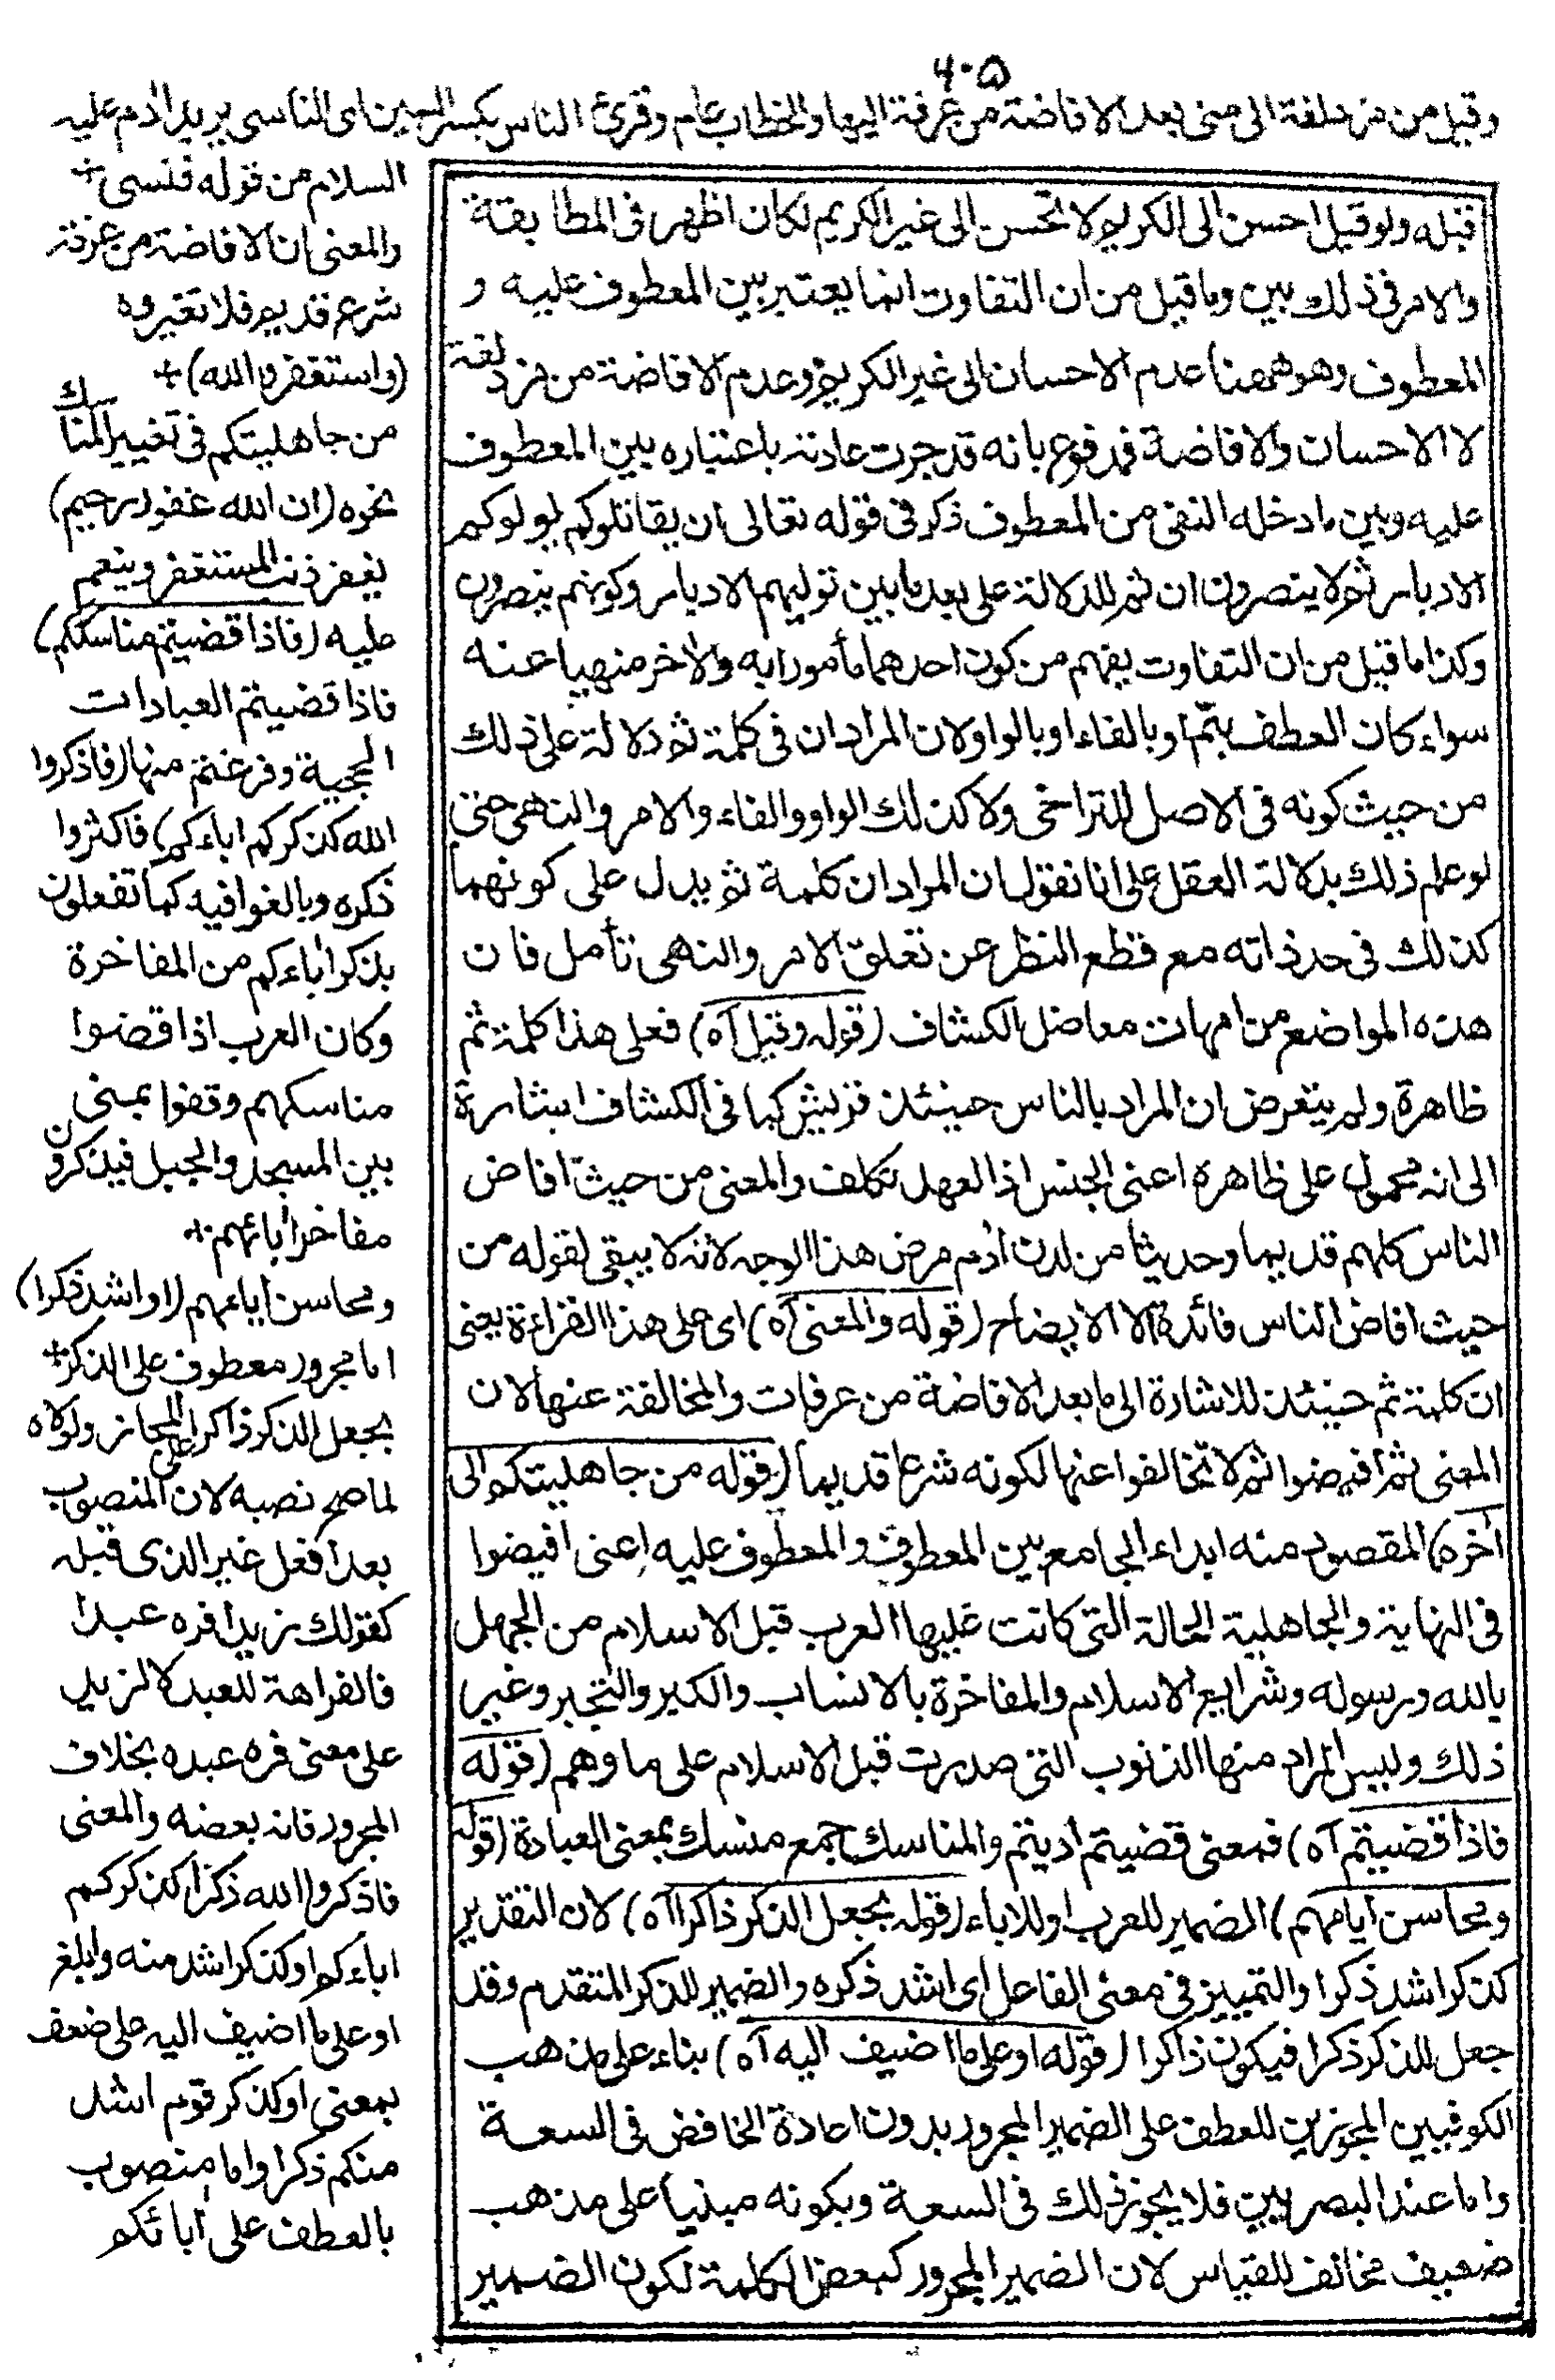 ٤٠٥
وقيل من مزدلفة الى منى بعد الافاضة من عرفة اليها والخطاب عام وقرئ الناس بكسر السين اى الناسى يريد اٰدم عليه
السلام من قوله فنسى +
والمعنى ان الافاضة من عرفة
شرع قديم فلا تغيروه
(واستغفروا الله) +
من جاهليتكم فى تغيير المناسك
ونحوه (ان الله غفور رحيم)
يغفر ذنب المستغفر وينعم
عليه (فاذا قضيتم مناسككم)
فاذا قضيتم العبادات
الحجية وفرغتم منها (فاذكروا
الله كذكركم اباءكم) فاكثروا
ذكره وبالغوا فيه كما تفعلون
بذكر اٰباءكم من المفاخرة
وكان العرب اذا قضوا
مناسكهم وقفوا بمنى
بين المسجد والجبل فيذكرون
مفاخر اٰبائهم +
ومحاسن ايامهم (او اشد ذكرا)
اما مجرور معطوف على الذكر +
بجعل الذكر ذاكرا على المجاز ولولاه
لما صح نصبه لان المنصوب
بعد افعل غير الذى قبله
كقولك زيد افره عبدا
فالفراهة للعبد لا لزيد
على معنى فره عبده بخلاف
المجرور فانه بعضه والمعنى
فاذكروا الله ذكرا كذكركم
اباءكم او كذكر اشد منه وابلغ
او على ما اضيف اليه على ضعف
بمعنى او كذكر قوم اشد
منكم ذكرا واما منصوب
بالعطف على اٰبائكم
قبله ولو قيل احسن الى الكريم ولا تحسن الى غير الكريم لكان اظهر فى المطابقة
والامر فى ذلك بين وما قيل من ان التفاوت انما يعتبر بين المعطوف عليه و
المعطوف وهو ههنا عدم الاحسان الى غير الكريم وعدم الافاضة من مزدلفة
لا الاحسان والافاضة فمدفوع بانه قد جرت عادته باعتباره بين المعطوف
عليه وبين ما دخله النفى من المعطوف ذكر فى قوله تعالى ان يقاتلوكم يولوكم
الادبار ثم لا ينصرون ان ثم للدلالة على بعد ما بين توليهم الادبار وكونهم ينصرون
وكذا ما قيل من ان التفاوت يفهم من كون احدهما مأمورا به والاٰخر منهيا عنه
سواء كان العطف بثم او بالفاء او بالواو لان المراد ان فى كلمة ثم دلالة على ذلك
من حيث كونه فى الاصل للتراخى ولا كذلك الواو والفاء والامر والنهى حتى
لو علم ذلك بدلالة العقل على انا نقول ان المراد ان كلمة ثم يدل على كونهما
كذلك فى حد ذاته مع قطع النظر عن تعلق الامر والنهى تأمل فان
هذه المواضع من امهات معاضل الكشاف (قوله وقيل آه) فعلى هذا كلمة ثم
ظاهرة ولم يتعرض ان المراد بالناس حينئذ قريش كما فى الكشاف اشارة
الى انه محمول على ظاهره اعنى الجنس اذ العهد تكلف والمعنى من حيث افاض
الناس كلهم قديما وحديثا من لدن اٰدم مرض هذا الوجه لانه لا يبقى لقوله من
حيث افاض الناس فائدة الا الايضاح (قوله والمعنى آه) اى على هذا القراءة يعنى
ان كلمة ثم حينئذ للاشارة الى ما بعد الافاضة من عرفات والمخالفة عنها لان
المعنى ثم افيضوا ثم لا تخالفوا عنها لكونه شرعا قديما (قوله من جاهليتكم الى
اٰخره) المقصود منه ابداء الجامع بين المعطوف والمعطوف عليه اعنى افيضوا
فى النهاية والجاهلية الحالة التى كانت عليها العرب قبل الاسلام من الجهل
بالله ورسوله وشرايع الاسلام والمفاخرة بالانساب والكبر والتجبر وغير
ذلك وليس المراد منها الذنوب التى صدرت قبل الاسلام على ما وهم (قوله
فاذا قضيتم آه) فمعنى قضيتم اديتم والمناسك جمع منسك بمعنى العبادة (قوله
ومحاسن ايامهم) الضمير للعرب او للاباء (قوله بجعل الذكر ذاكرا آه) لان التقدير
كذكر اشد ذكرا والتمييز فى معنى الفاعل اى اشد ذكره والضمير للذكر المتقدم وقد
جعل للذكر ذكرا فيكون ذاكرا (قوله او على ما اضيف اليه آه) بناء على مذهب
الكوفيين المجوزين للعطف على الضمير المجرور بدون اعادة الخافض فى السعة
واما عند البصريين فلا يجوز ذلك فى السعة وبكونه مبنيا على مذهب
ضعيف مخالف للقياس لان الضمير المجرور كبعض الكلمة لكون الضمير